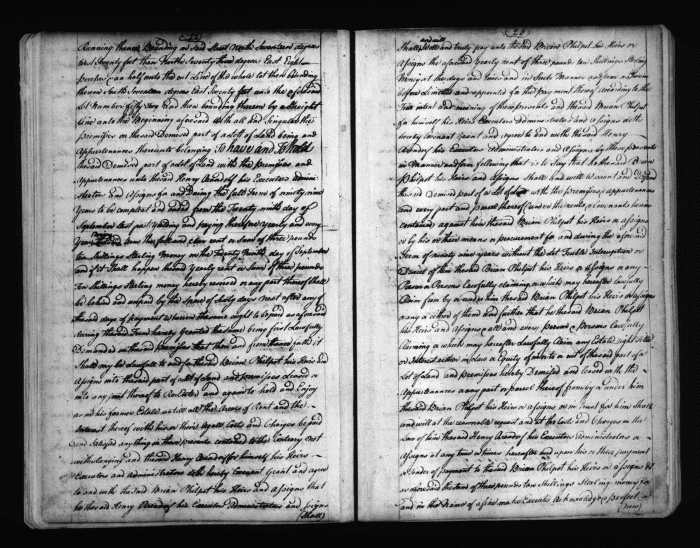 Running thence Bounding on said Street North Seventeen degrees
West Twenty feet then North Seventy three degrees East Eight
perches and half unto the out Line of the whole lot then bounding
thereon South Seventeen degrees East Twenty feet unto the aforesaid
Lot Number fifty four and then bounding thereon by a straight
line unto the Beginning aforesaid with all and Singular the
premises on the said Demised part of a Lott of Land being and
Appurtenances thereunto belonging To have and To hold
the said Demised part of a Lot of Land with the premises and
Appurtenances unto the said Henry his Executors Admini-
strators and Assigns for and During the full Term of ninety nine
Years to be compleat and ended from the Twenty ninth day of
September last past Yeilding and paying therefore yearly and every
Year the Rent or Sum of three pounds
ten Shillings Sterling Money on the Twenty Ninth day of September
and if it Shall happen the said Yearly rent or Sum of three pounds
Ten Shillings Sterling money hereby reserved or any part thereof Shall
be behind and unpaid by the Space of Sixty days next after any of
the said days of payment wherein the same ought to be paid as aforesaid
during the said Term hereby granted the same being first Lawfully
Demanded on the said premises that then and from thenceforth it
Shall may be lawfull to and for the said Brian Philpot his Heirs and
Assigns into the said part of a Lot of Land and premises demised or
into any part thereof to ReEnter and again to hold and Enjoy
as in his former Estate untill all the Arrears of Rent and the
Interest thereof with his or their Legall Costs and Charges be paid
and Satisfied any thing in these presents contained to the Contrary not
withstanding and the said Henry for himself his Heirs
Executors and Administrators doth hereby Covenant Grant and agree
to and with the said Brian Philpot his Heirs and Assigns that
he the said Henry his Executors Administrators and Assigns
(Shall)
and will
Shall Well and truly pay unto the said Brian Philpot his Heirs or
Assigns the aforesaid Yearly rent of three pounds ten Shillings Sterling
Money at the days and times and in Such Manner and form as herein
before Limited and appointed for the payment thereof according to the
True intent and meaning of these presents and the said Brian Philpot
for himself his Heirs Executors Administrators and Assigns doth
hereby Covenant Grant and agree to and with the said Henry
his Executors Administrators and Assigns by these presents
in Manner and form following that is to Say that he the said Brian
Philpot his Heirs and Assigns Shall and will Warrant and Defend
the said Demised part of a Lot of Land with the premises & appurtenances
and every part and parcel thereof under the rents & Covenants herein
contained against him the said Brian Philpot his Heirs or Assigns
or by his or their means or procurement for and during the aforesaid
Term of ninety nine Years without the Let Trouble Interruption or
Denial of him the said Brian Philpot his Heirs or Assigns or any
Person or Persons Lawfully claiming or which may hereafter Lawfully
Claim from by or under him the said Brian Philpot his Heirs or Assigns
or any or either of them and further that he the said Brian Philpot
his Heirs and Assigns & all and every person & Persons Lawfully
Claiming or which may hereafter Lawfully Claim any Estate right title
or Interest either in Law or Equity of into or out of the said part of a
Lot of Land and Premises hereby Demised and Leased with the
Appurtenances or any part or parcel thereof from by or under him
the said Brian Philpot his Heirs or Assigns or in trust for him Shall
and will at the reasonable request and at the Costs and Charges in the
Law of him the said Henry his Executors Administrators or
Assigns at any time or times hereafter had upon his or their payment
or tender of payment to the said Brian Philpot his Heirs or Assigns &c
the Sum of three pounds ten Shillings Sterling money
and in the Name of a fine make Execute Acknowledge & perfect a
(New)